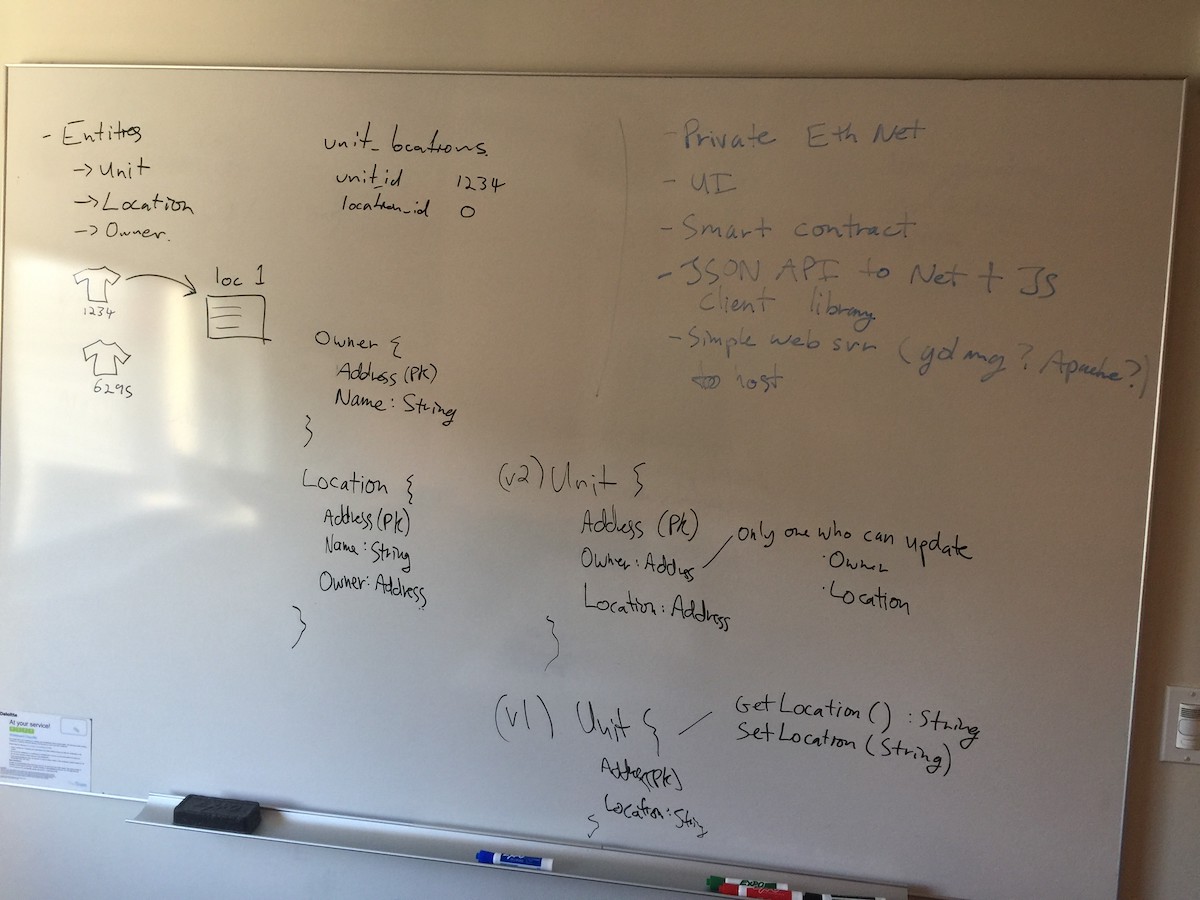 - Entities
→ Unit
→ Location
→ Owner.
1234
6295
loc 1
unit_locations
unit_id 1234
location_id 0
Owner {
Address (PK)
Name: String
}
Location {
Address (PK)
Name: String
Owner: Address
}
- Private Eth Net
- UI
- Smart contract
- JSON API to Net + JS
client library
- Simple web svr (golang? Apache?)
to host
(v2) Unit {
Address (PK)
Owner: Address
Location: Address
}
only one who can update
· Owner
· Location
(v1) Unit {
Address (PK)
Location: String
}
GetLocation() : String
SetLocation(String)
Deloitte
At your service!
EXPO